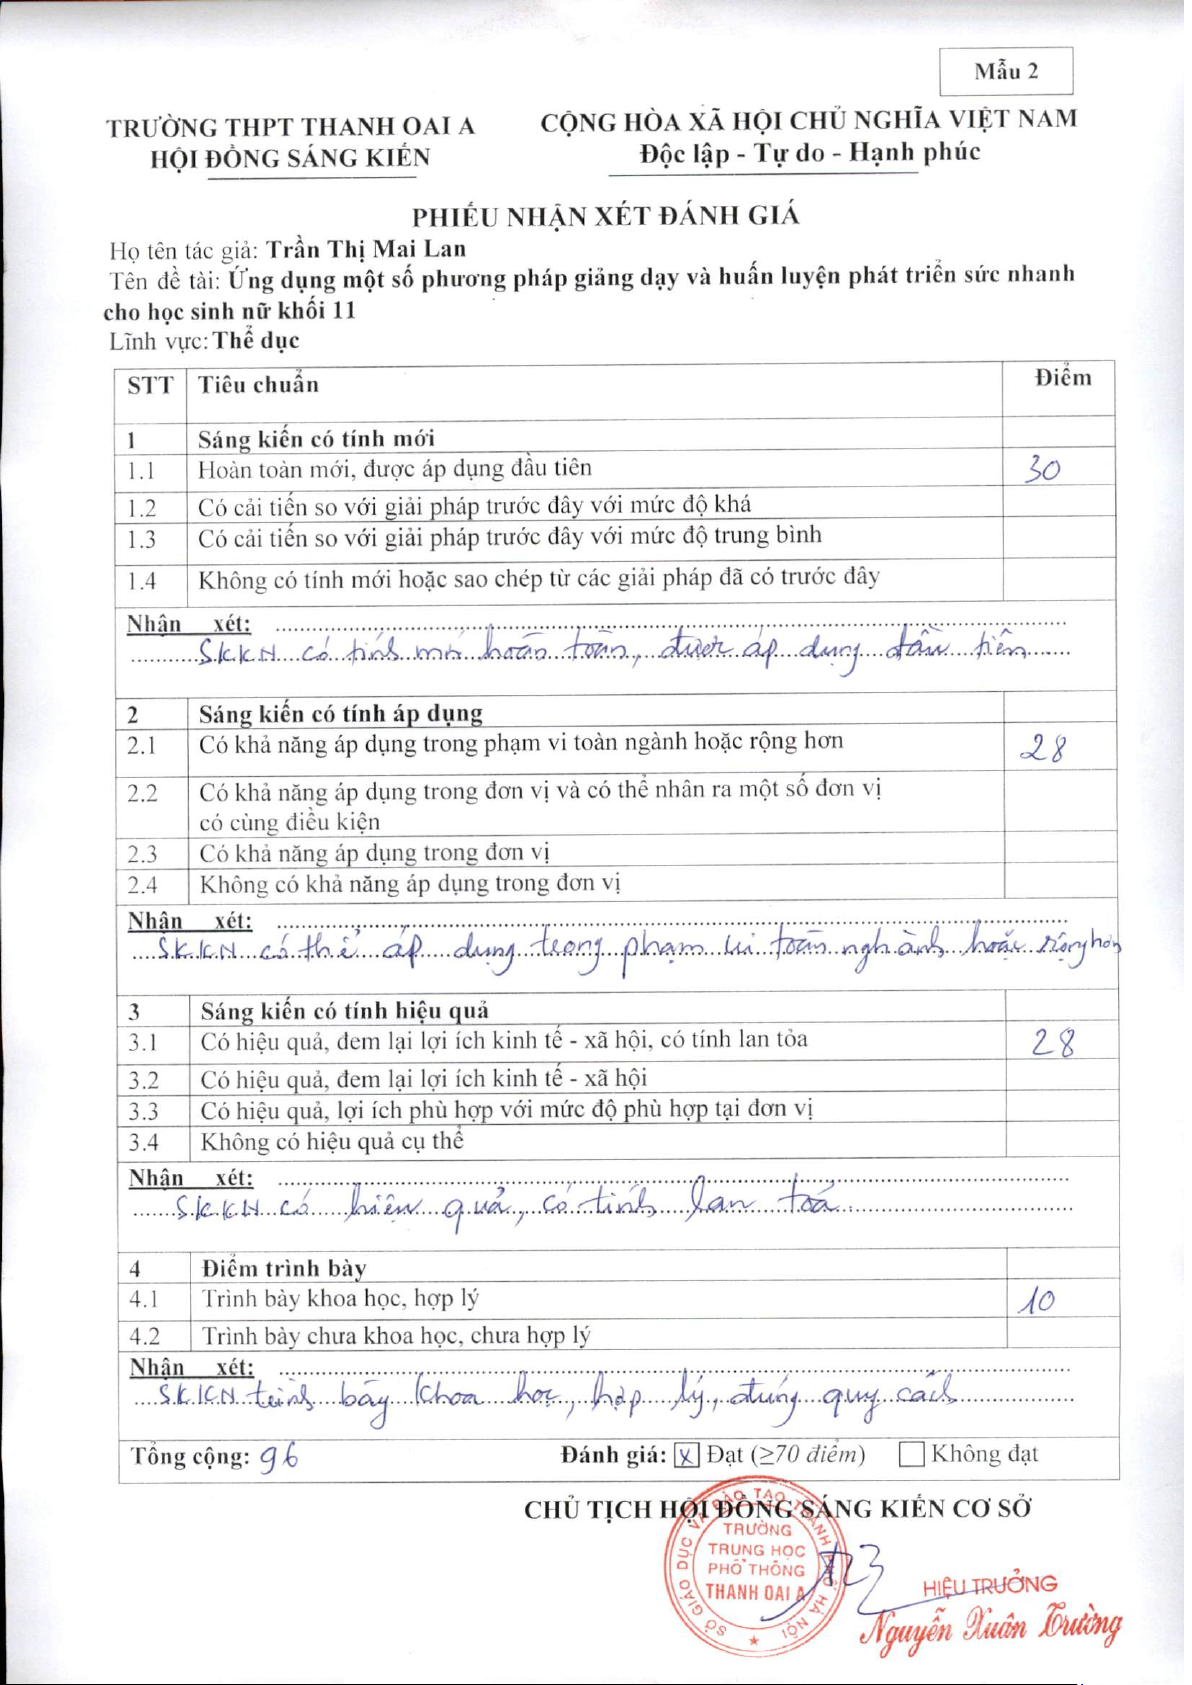 Mẫu 2
TRƯỜNG THPT THANH OAI A
HỘI ĐỒNG SÁNG KIẾN
CỘNG HÒA XÃ HỘI CHỦ NGHĨA VIỆT NAM
Độc lập - Tự do - Hạnh phúc
PHIẾU NHẬN XÉT ĐÁNH GIÁ
Họ tên tác giả: Trần Thị Mai Lan
Tên đề tài: Ứng dụng một số phương pháp giảng dạy và huấn luyện phát triển sức nhanh
cho học sinh nữ khối 11
Lĩnh vực: Thể dục
STT Tiêu chuẩn Điểm
1 Sáng kiến có tính mới
1.1 Hoàn toàn mới, được áp dụng đầu tiên 30
1.2 Có cải tiến so với giải pháp trước đây với mức độ khá
1.3 Có cải tiến so với giải pháp trước đây với mức độ trung bình
1.4 Không có tính mới hoặc sao chép từ các giải pháp đã có trước đây
Nhận xét:
SKKN có tính mới hoàn toàn, được áp dụng đầu tiên
2 Sáng kiến có tính áp dụng
2.1 Có khả năng áp dụng trong phạm vi toàn ngành hoặc rộng hơn 28
2.2 Có khả năng áp dụng trong đơn vị và có thể nhân ra một số đơn vị
có cùng điều kiện
2.3 Có khả năng áp dụng trong đơn vị
2.4 Không có khả năng áp dụng trong đơn vị
Nhận xét:
SKKN có thể áp dụng trong phạm vi toàn nghành hoặc rộng hơn
3 Sáng kiến có tính hiệu quả
3.1 Có hiệu quả, đem lại lợi ích kinh tế - xã hội, có tính lan tỏa 28
3.2 Có hiệu quả, đem lại lợi ích kinh tế - xã hội
3.3 Có hiệu quả, lợi ích phù hợp với mức độ phù hợp tại đơn vị
3.4 Không có hiệu quả cụ thể
Nhận xét:
SKKN có hiệu quả, có tính lan toả
4 Điểm trình bày
4.1 Trình bày khoa học, hợp lý 10
4.2 Trình bày chưa khoa học, chưa hợp lý
Nhận xét:
SKKN trình bày khoa học, hợp lý, đúng quy cách
Tổng cộng: 96 Đánh giá: x Đạt (≥70 điểm) Không đạt
CHỦ TỊCH HỘI ĐỒNG SÁNG KIẾN CƠ SỞ
SỞ GIÁO DỤC VÀ ĐÀO TẠO THÀNH PHỐ HÀ NỘI
TRƯỜNG
TRUNG HỌC
PHỔ THÔNG
THANH OAI A
HIỆU TRƯỞNG
Nguyễn Xuân Trường